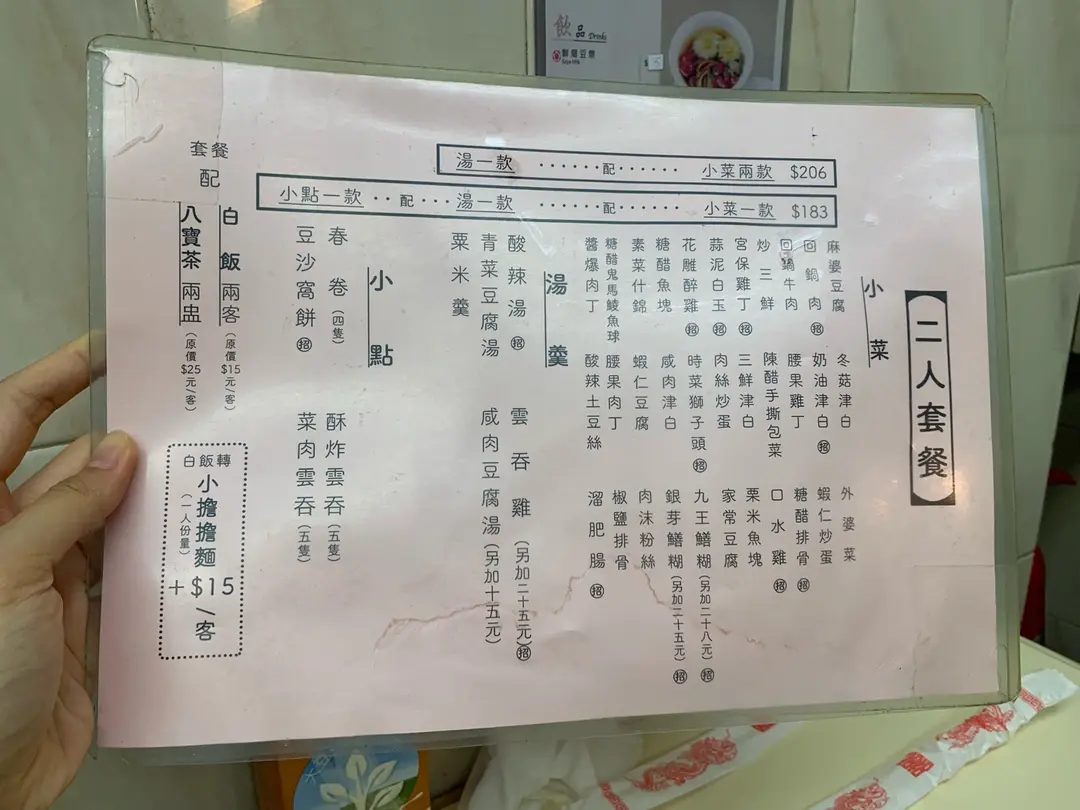 飲品 Drinks
鮮磨豆漿
Soya Milk
二人套餐
湯一款 ······配······ 小菜兩款 $206
小點一款 ··配··· 湯一款 ······配······ 小菜一款 $183
小菜
麻婆豆腐
回鍋肉 招
回鍋牛肉
炒三鮮
宮保雞丁 招
蒜泥白玉 招
花雕醉雞 招
糖醋魚塊
素菜什錦
糖醋鬼馬鯪魚球
醬爆肉丁
冬菇津白
奶油津白 招
腰果雞丁
陳醋手撕包菜
三鮮津白
肉絲炒蛋
時菜獅子頭 招
咸肉津白
蝦仁豆腐
腰果肉丁
酸辣土豆絲
外婆菜
蝦仁炒蛋
糖醋排骨 招
口水雞 招
栗米魚塊
家常豆腐
九王鱔糊(另加二十八元) 招
銀芽鱔糊(另加二十五元) 招
肉沫粉絲
椒鹽排骨
溜肥腸 招
湯羹
酸辣湯 招
青菜豆腐湯
粟米羹
雲吞雞(另加二十五元) 招
咸肉豆腐湯(另加十五元)
小點
春卷(四隻)
豆沙窩餅 招
酥炸雲吞(五隻)
菜肉雲吞(五隻)
套餐
配
白飯兩客(原價$15元/客)
八寶茶兩盅(原價$25元/客)
白飯轉
小擔擔麵
(一人份量)
+$15
/客